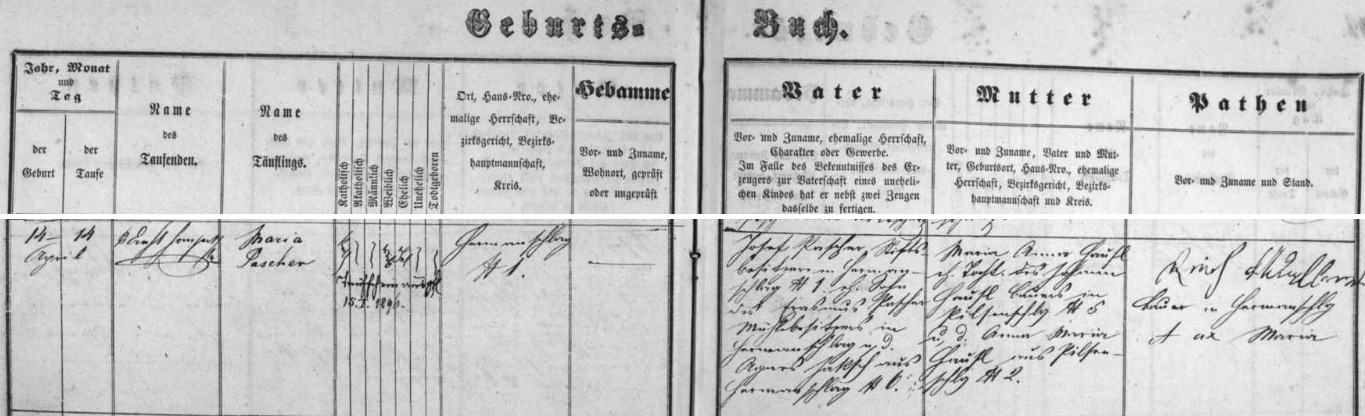 Geburts-
Buch.
Jahr, Monat
und
Tag
der
Geburt
der
Taufe
Name
des
Taufenden.
Name
des
Täuflings.
Katholisch
Akatholisch
Männlich
Weiblich
Ehelich
Unehelich
Todtgeboren
Ort, Haus-Nro., ehe-
malige Herrschaft, Be-
zirksgericht, Bezirks-
hauptmannschaft,
Kreis.
Hebamme
Vor- und Zuname,
Wohnort, geprüft
oder ungeprüft
Vater
Vor- und Zuname, ehemalige Herrschaft,
Charakter oder Gewerbe.
Im Falle des Bekenntnisses des Er-
zeugers zur Vaterschaft eines uneheli-
chen Kindes hat er nebst zwei Zeugen
dasselbe zu fertigen.
Mutter
Vor- und Zuname, Vater und Mut-
ter, Geburtsort, Haus-Nro., ehemalige
Herrschaft, Bezirksgericht, Bezirks-
hauptmannschaft und Kreis.
Pathen
Vor- und Zuname und Stand.
14 14
April
Maria
Pascher
Taufschein
15.I.1896.
Hermanschlag
№ 1.
Josef Pascher,
besitzer in Herman-
schlag № 1. eh. Sohn
des Erasmus Pascher
Mühlbesitzers in
Hermanschlag u. d.
Agnes Jaksch aus
Hermanschlag № 6.
Maria Anna
eh. Tocht. des Johann
Bauers in
Pilsenschlag № 5
u. d. Anna Maria
aus Pilsen-
schlag № 2.
Bauer in Hermanschlag
Maria